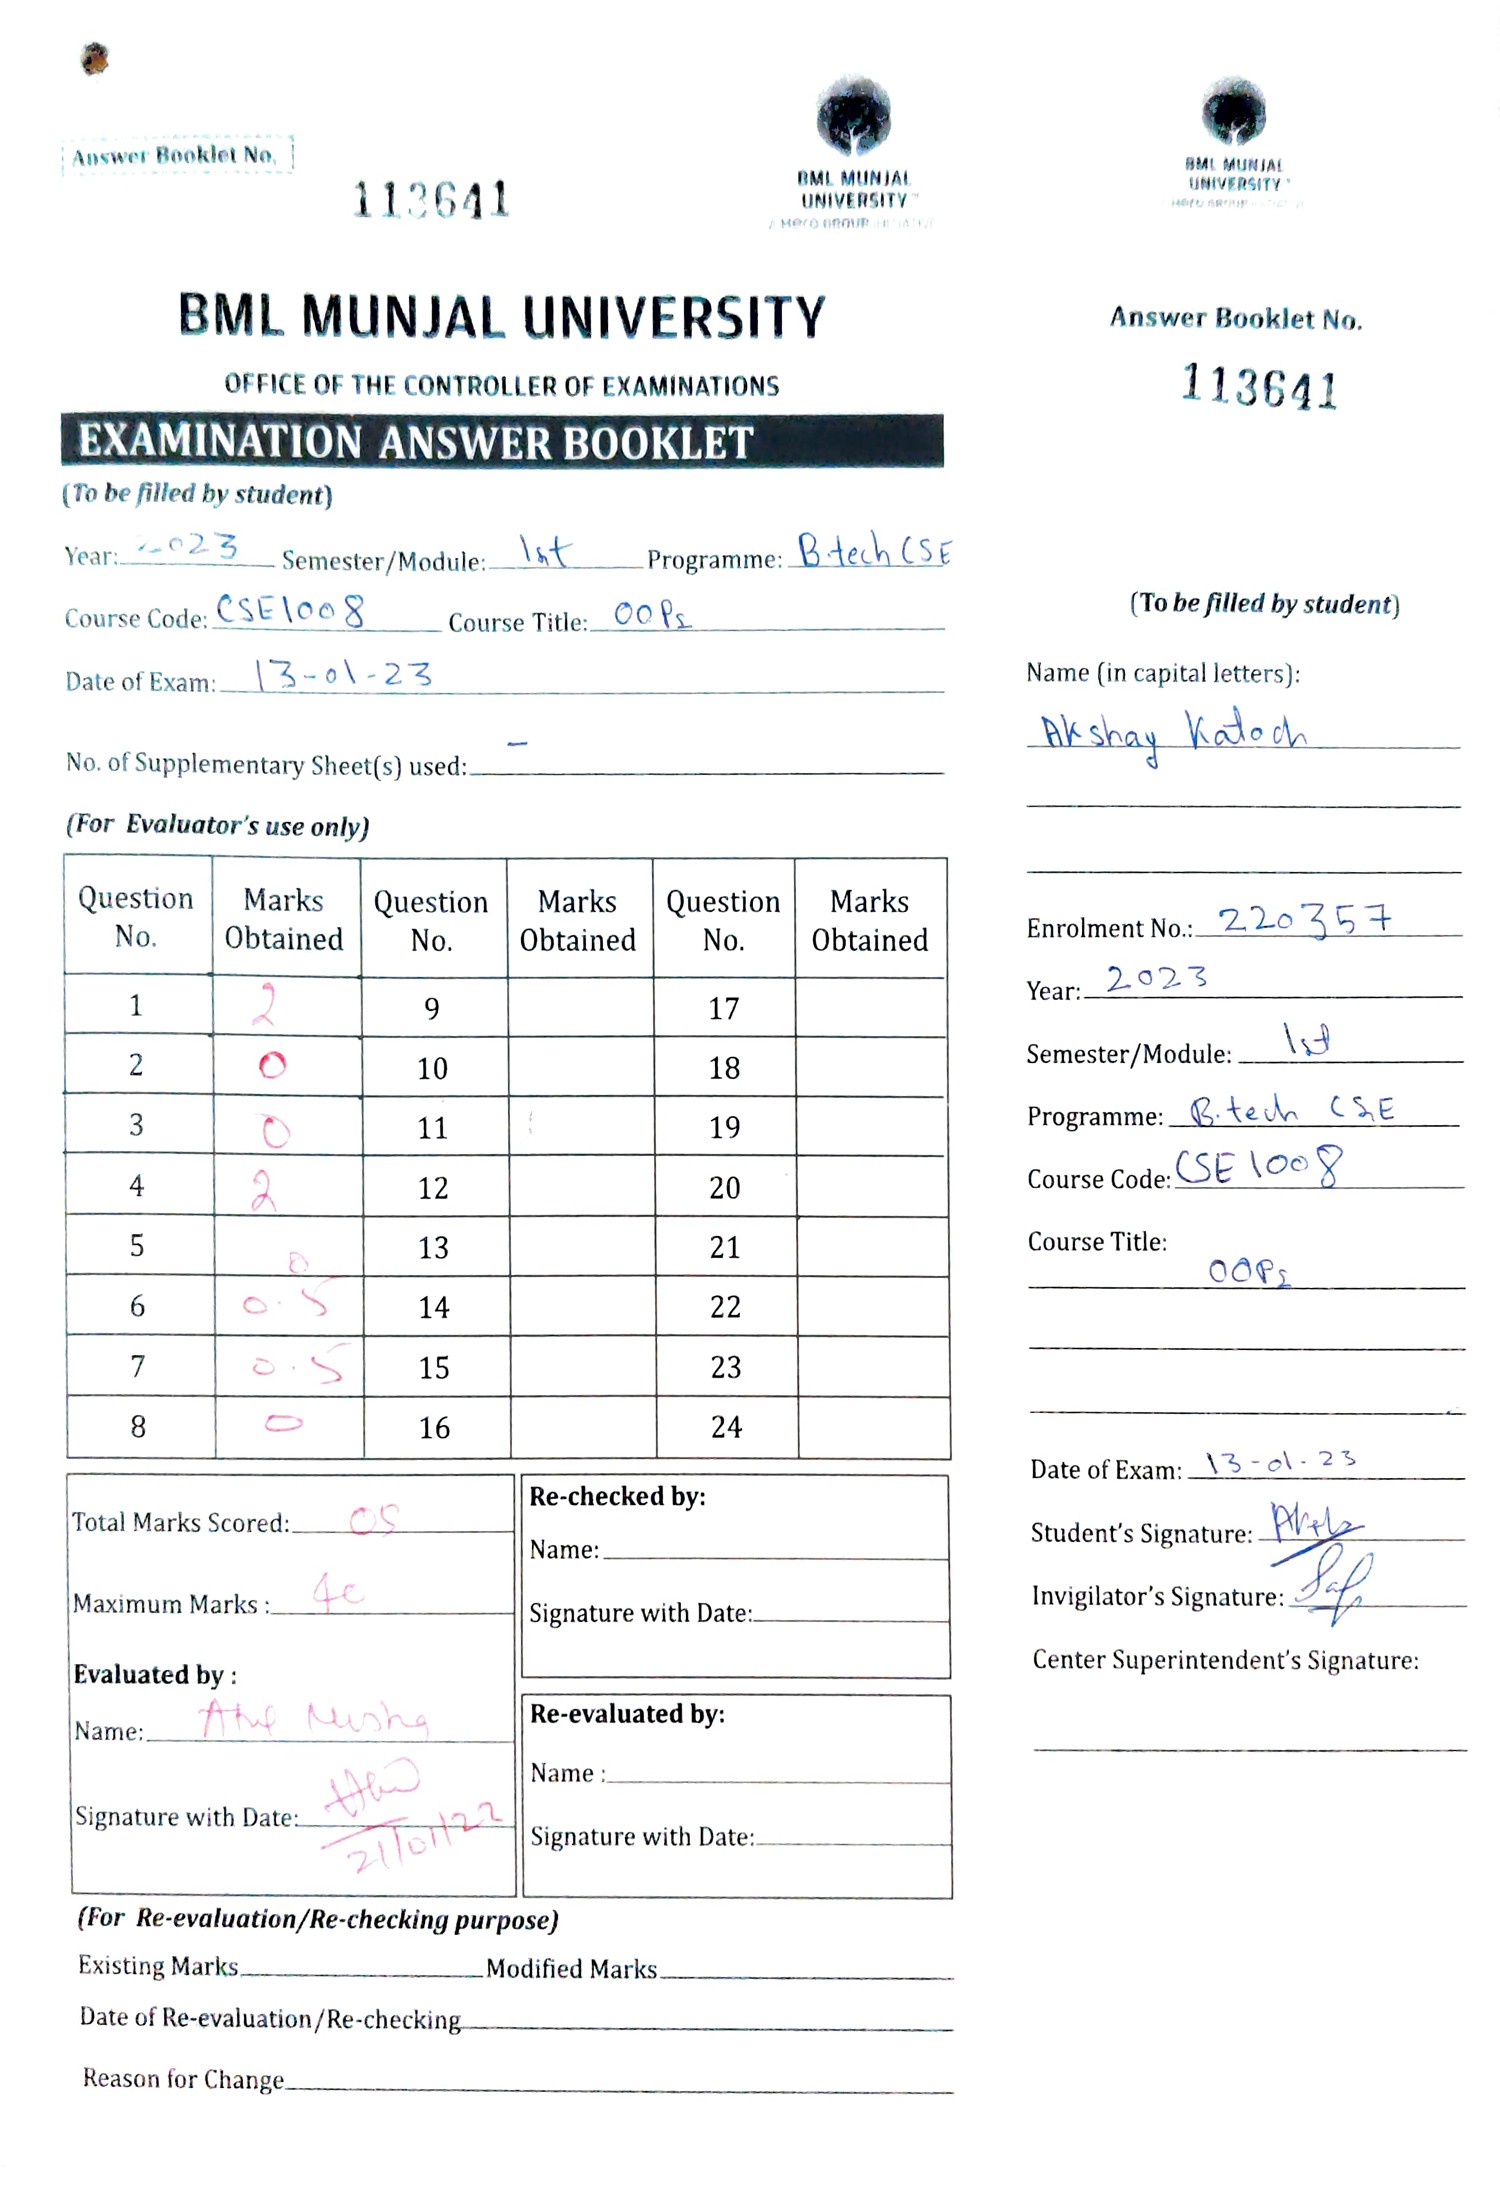 Answer Booklet No.
113641
BML MUNJAL
UNIVERSITY™
A Hero GROUP INITIATIVE
BML MUNJAL UNIVERSITY
OFFICE OF THE CONTROLLER OF EXAMINATIONS
EXAMINATION ANSWER BOOKLET
(To be filled by student)
Year: 2023 Semester/Module: 1st Programme: B.tech CSE
Course Code: CSE1008 Course Title: OOPs
Date of Exam: 13-01-23
No. of Supplementary Sheet(s) used: –
(For Evaluator's use only)
Question No. Marks Obtained Question No. Marks Obtained Question No. Marks Obtained
1 2 9 17
2 0 10 18
3 0 11 19
4 2 12 20
5 0 13 21
6 0.5 14 22
7 0.5 15 23
8 0 16 24
Total Marks Scored: 05
Maximum Marks : 40
Evaluated by :
Name:
Signature with Date: 21/01/22
Re-checked by:
Name:
Signature with Date:
Re-evaluated by:
Name :
Signature with Date:
(For Re-evaluation/Re-checking purpose)
Existing Marks Modified Marks
Date of Re-evaluation/Re-checking
Reason for Change
BML MUNJAL
UNIVERSITY™
A Hero GROUP INITIATIVE
Answer Booklet No.
113641
(To be filled by student)
Name (in capital letters):
Akshay Katoch
Enrolment No.: 220357
Year: 2023
Semester/Module: 1st
Programme: B.tech CSE
Course Code: CSE1008
Course Title:
OOPs
Date of Exam: 13-01-23
Student's Signature:
Invigilator's Signature:
Center Superintendent's Signature: